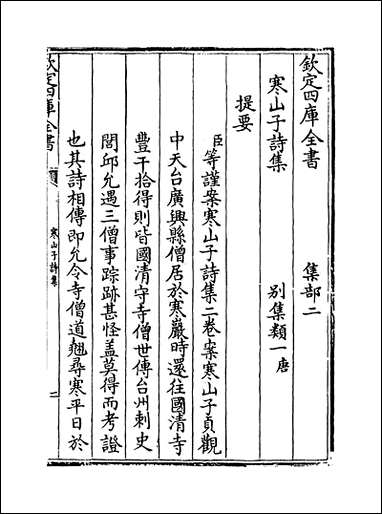 欽定四庫全書　集部二
寒山子詩集　别集類一唐
提要
臣等謹案寒山子詩集二卷案寒山子貞觀
中天台廣興縣僧居於寒巖時還往國清寺
豐干拾得則皆國清守寺僧世傳台州刺史
閭邱允遇三僧事踪跡甚怪蓋莫得而考證
也其詩相傳即允令寺僧道翹尋寒平日於
欽定四庫全書
寒山子詩集